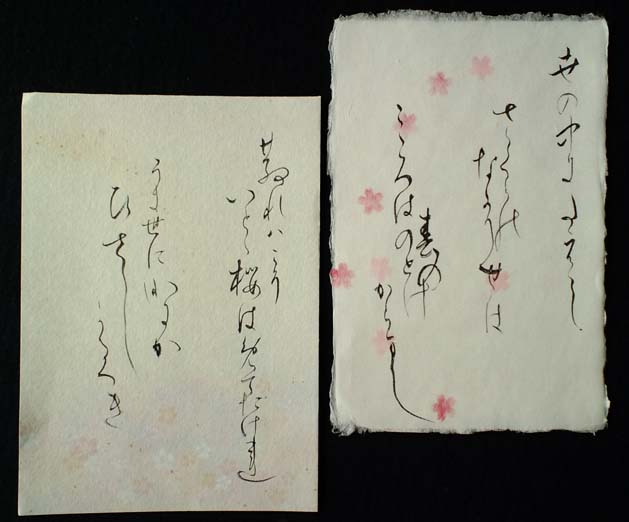 世の中にたえて
さくらの
なかりせは
春の
こゝろはのとけ
からまし
散れはこそ
いとゝ桜はめてたけれ
うき世になにか
ひさし
かるへき